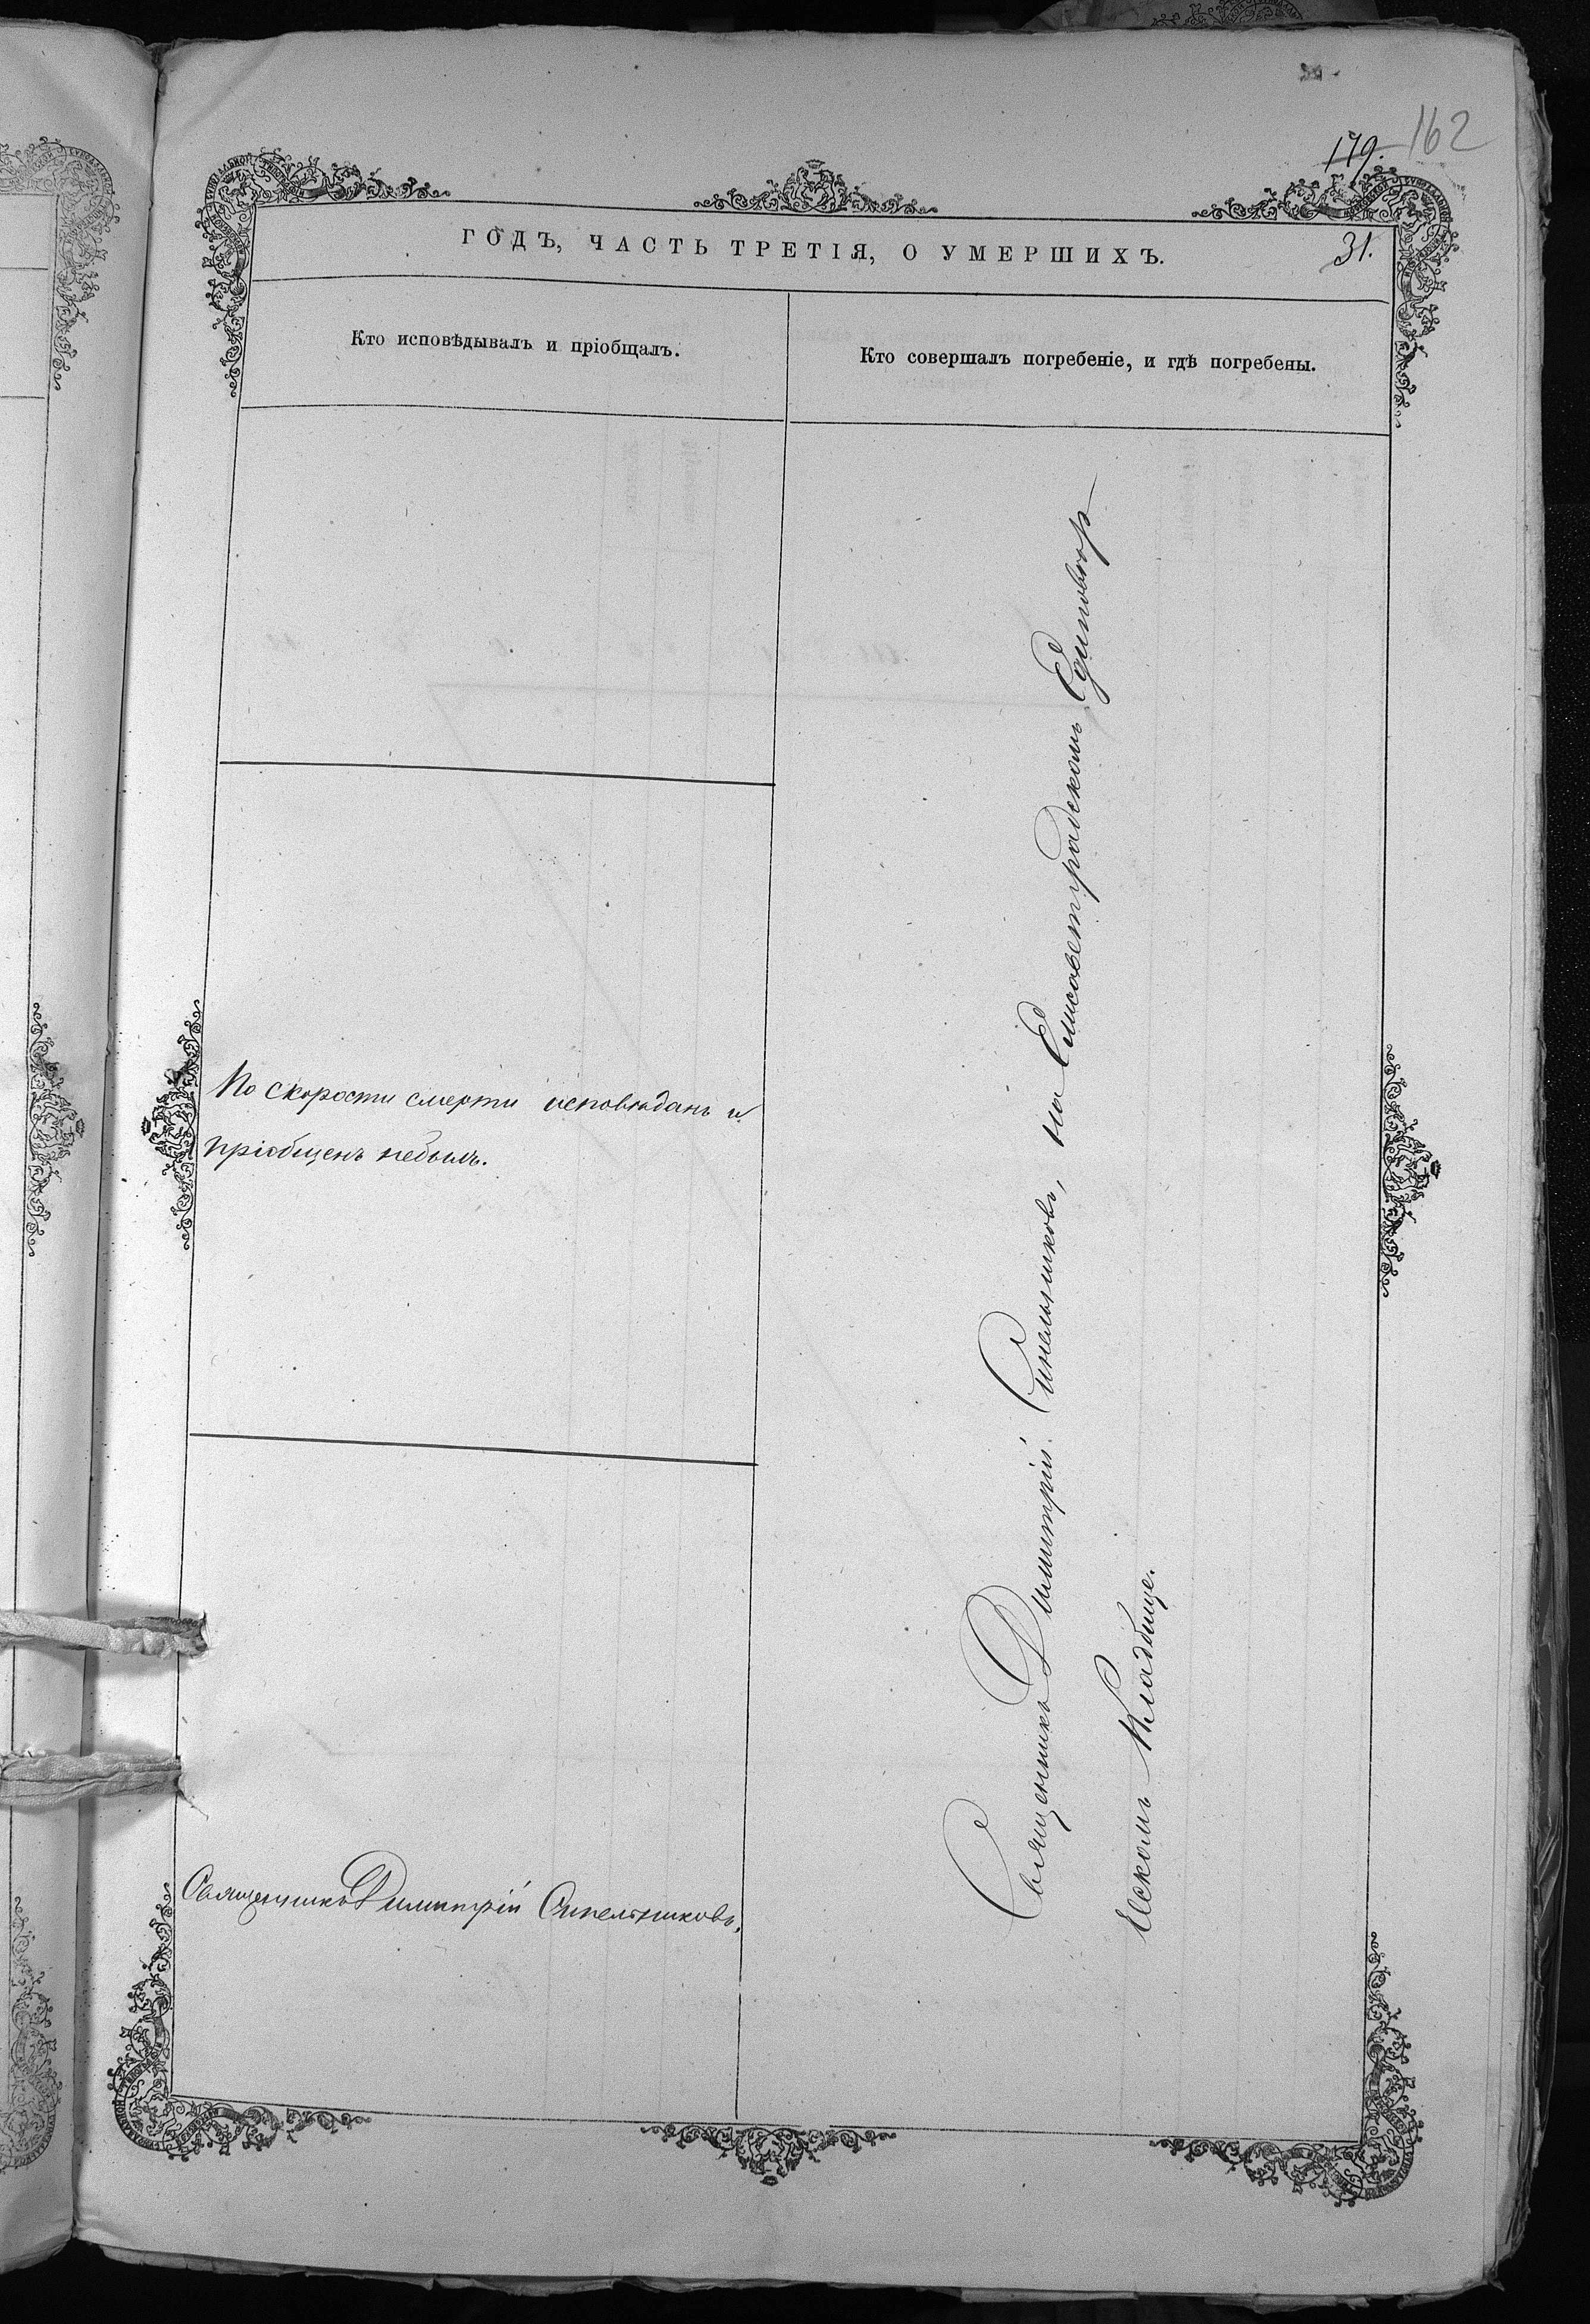 162
179.
ГОДЪ, ЧАСТЬ ТРЕТІЯ, О УМЕРШИХЪ.
31.
Кто исповѣдывалъ и пріобщалъ.
Кто совершалъ погребеніе, и гдѣ погребены.
По скорости смерти исповѣданъ и
пріобщенъ небылъ.
Священникъ Димитрій Синельниковъ.
Священникъ Димитрій Синельниковъ, на Елисаветградскомъ Единовѣр
ческомъ Кладбище.